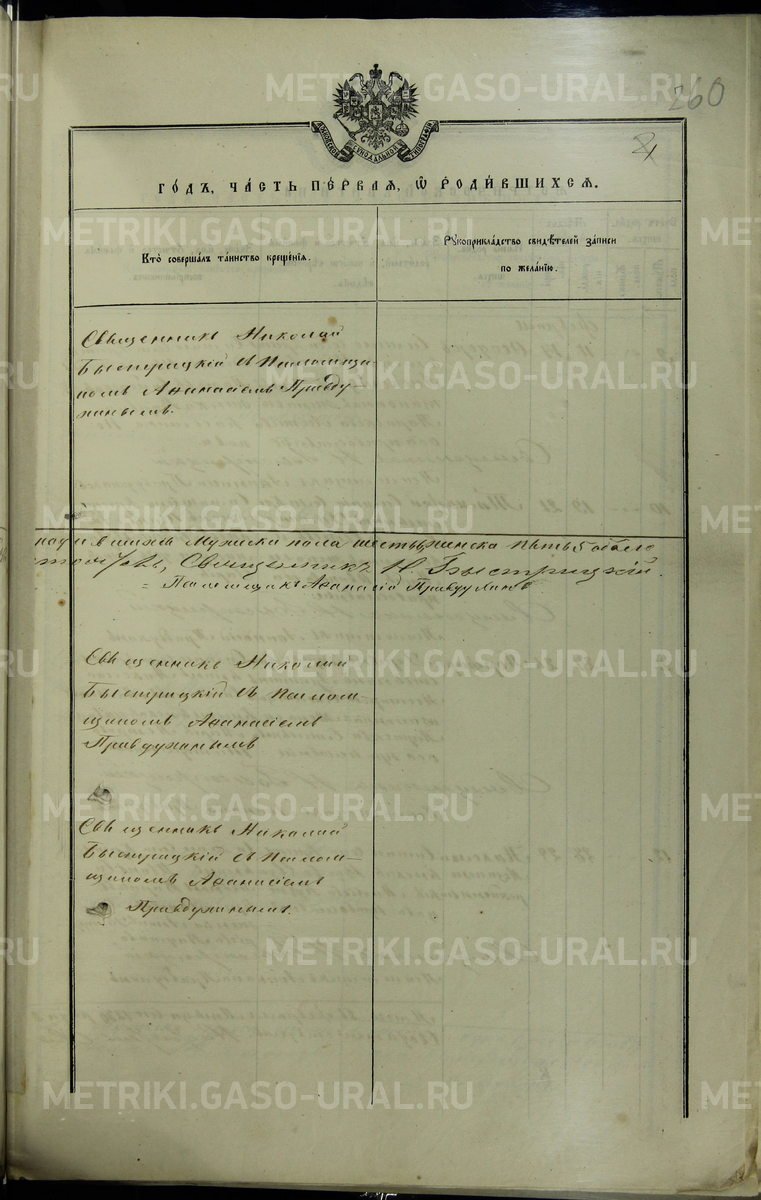 260
МОСКОВСКОЙ СѴНОДАЛЬНОЙ ТИПОГРАФІИ
го́дъ, ча́сть пе́рвая, ѡ҆ роди́вшихсѧ.
Кто̀ соверша́лъ та́инство креще́нїя.
Рꙋкоприкла́дство свидѣ́телей за́писи
по жела́нїю.
Священникъ Николай
Быстрицкій съ Псаломщи-
комъ Аѳанасіемъ Правду-
хинымъ.
Мужска пола шесть, женска пять 5 обоего
Священникъ Н. Быстрицкій.
= Псаломщикъ Аѳанасій Правдухинъ
Священникъ Николай
Быстрицкій съ Псалом-
щикомъ Аѳанасіемъ
Правдухинымъ
Священникъ Николай
Быстрицкій съ Псалом-
щикомъ Аѳанасіемъ
Правдухинымъ.
METRIKI.GASO-URAL.RU